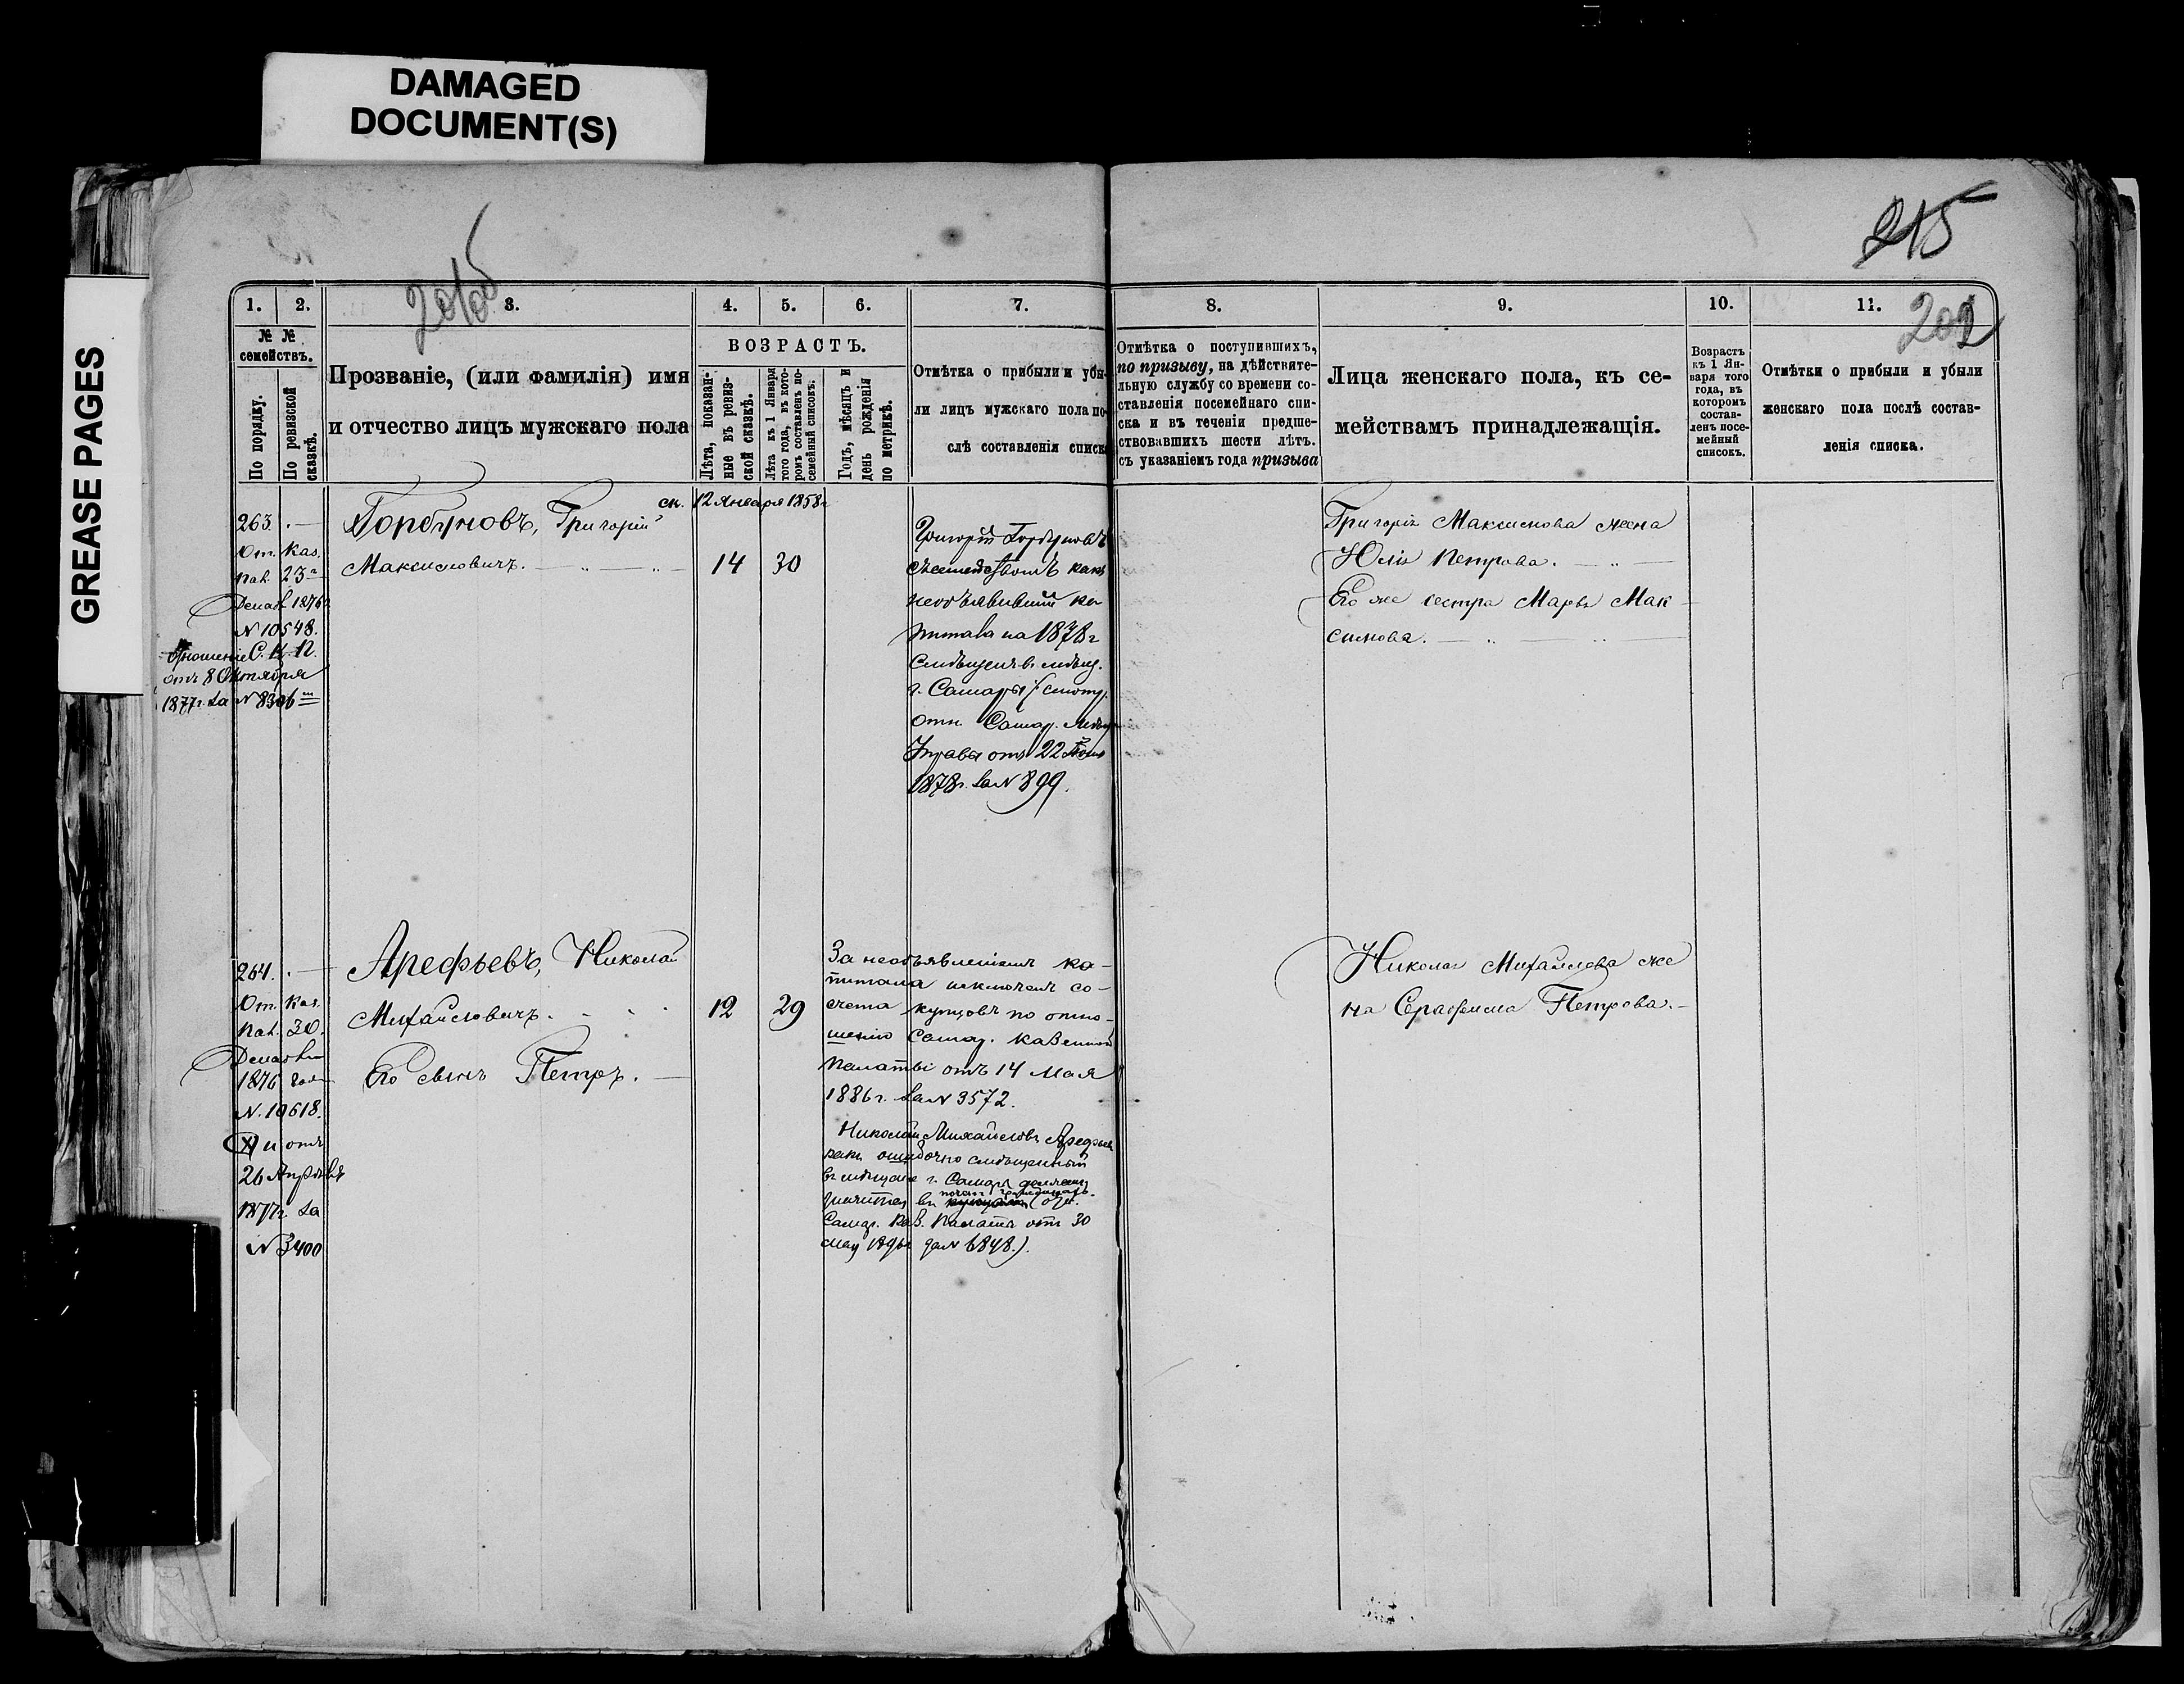 DAMAGED
DOCUMENT(S)
GREASE PAGES
215
202
1. 2. 3. 4. 5. 6. 7. 8. 9. 10. 11.
№ №
семействъ.
По порядку.
По ревизской
сказкѣ.
Прозваніе, (или фамилія) имя
и отчество лицъ мужскаго пола
ВОЗРАСТЪ.
Лѣта, показан-
ные въ ревиз-
ской сказкѣ.
Лѣта къ 1 Января
того года, въ кото-
ромъ составленъ по-
семейный списокъ.
Годъ, мѣсяцъ и
день рожденія
по метрикѣ.
Отмѣтка о прибыли и убы-
ли лицъ мужскаго пола по-
слѣ составленія списка
Отмѣтка о поступившихъ,
по призыву, на дѣйствите-
льную службу со времени со-
ставленія посемейнаго спи-
ска и въ теченіи предше-
ствовавшихъ шести лѣтъ.
съ указаніемъ года призыва
Лица женскаго пола, къ се-
мействамъ принадлежащія.
Возрастъ
къ 1 Ян-
варя того
года, въ
которомъ
состав-
ленъ посе-
мейный
списокъ.
Отмѣтки о прибыли и убыли
женскаго пола послѣ состав-
ленія списка.
263. . —
От. Каз.
Пал. 23
Декаб 1876
N 10548.
Отношеніе С. К. П.
отъ 8 Октября
1877г. за N 8306
Горбуновъ, Григорій
Максимовичъ.
ск. 12 Января 1858г
14 30
Григорій Горбуновъ
съ семействомъ какъ
необъявившій ка
питала на 1878г
Смѣщенъ в. мѣщ.
г. Самары (смотр.
отн. Самар. Мѣщ
Управы отъ 22
1878г. за N 899.
Григорія Максимова жена
Юлія Петрова.
Его же сестра Марья Мак
симова.
264. . —
От. Каз.
Пал. 30.
Декабря
1876 года
N. 10618.
и отъ
26 Апрѣля
1877г. за
N 3400
Арефьевъ, Николай
Михайловичъ.
Его сынъ Петръ.
12 29
За необъявленіемъ ка-
питала исключенъ со-
счета купцовъ по отно-
шенію Самар. Казенной
Палаты отъ 14 Мая
1886г. за N 3572.
Николай Михайловъ Арефьев
какъ ошибочно смѣщенный
въ мѣщане г. Самары долженъ
Самар. Каз. Палаты отъ 30
Мая за N 6848.).
Николая Михайлова же
на Серафима Петрова.